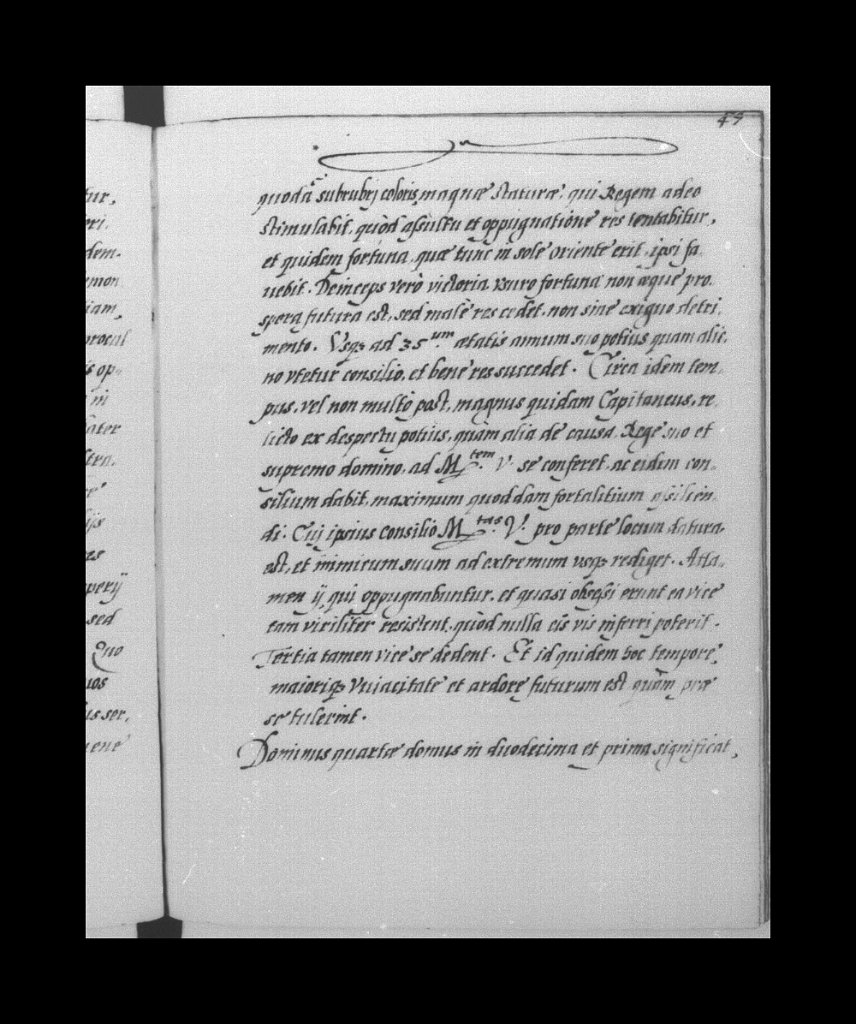 tur,
eri.
dem-
emon
iam,
procal
is op-
in
ater
stra.
re
ijs
es
perij
sed
Quo
uos
us ser.
uene
49
quodã subrubij coloris, magnæ staturæ, qui Regem adeo
stimulabit, quòd assultu et oppugnatione res tentabitur,
et quidem fortuna, quæ tunc in sole oriente erit, ipsi fa.
uebit. Deinceps verò victoria vsuro fortuna non æque pro.
spera futura est, sed malè res cedet, non sine exiguo detri.
mento. Vsqȝ ad 35.um ætatis annum suo potius quam alie.
no vtetur consilio, et bene res succedet. Circa idem tem-
pus, vel non multo post, magnus quidam Capitaneus, re.
licto ex despectu potius, quàm alia de causa, Rege suo et
supremo domino, ad M.tem V. se conferet, ac eidem con-
silium dabit, maximum quoddam fortalitium assilien-
di. Cuj ipsius consilio M.tas V. pro parte locum datura
est, et inimicum suum ad extremum vsqȝ rediget. Atta-
men ij, qui oppugnabuntur, et quasi obsessi erunt ea vice
tam viriliter resistent, quòd nulla eis vis inferri poterit.
Tertia tamen vice se dedent. Et id quidem hoc tempore,
maioriqȝ viuacitate et ardore futurum est quàm præ
se tulerint.
Dominus quartæ domus in duodecima et prima significat,